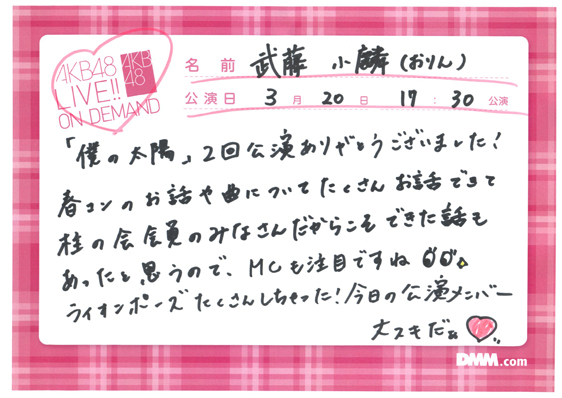 AKB48
LIVE!!
ON DEMAND
AKB
48
名前 武藤 小麟(おりん)
公演日 3月20日 17:30公演
「僕の太陽」2回公演ありがとうございました!
春コンのお話や曲についてたくさんお話できて
柱の会会員のみなさんだからこそできた話も
あったと思うので、MCも注目ですね
ライオンポーズたくさんしちゃった!今日の公演メンバー
大スキだぁ
DMM.com